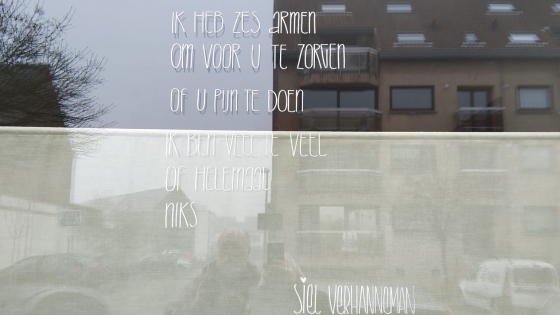 IK HEB ZES ARMEN
OM VOOR U TE ZORGEN
OF U PIJN TE DOEN
IK BEN VEEL TE VEEL
OF HELEMAAL
NIKS
SIEL VERHANNEMAN